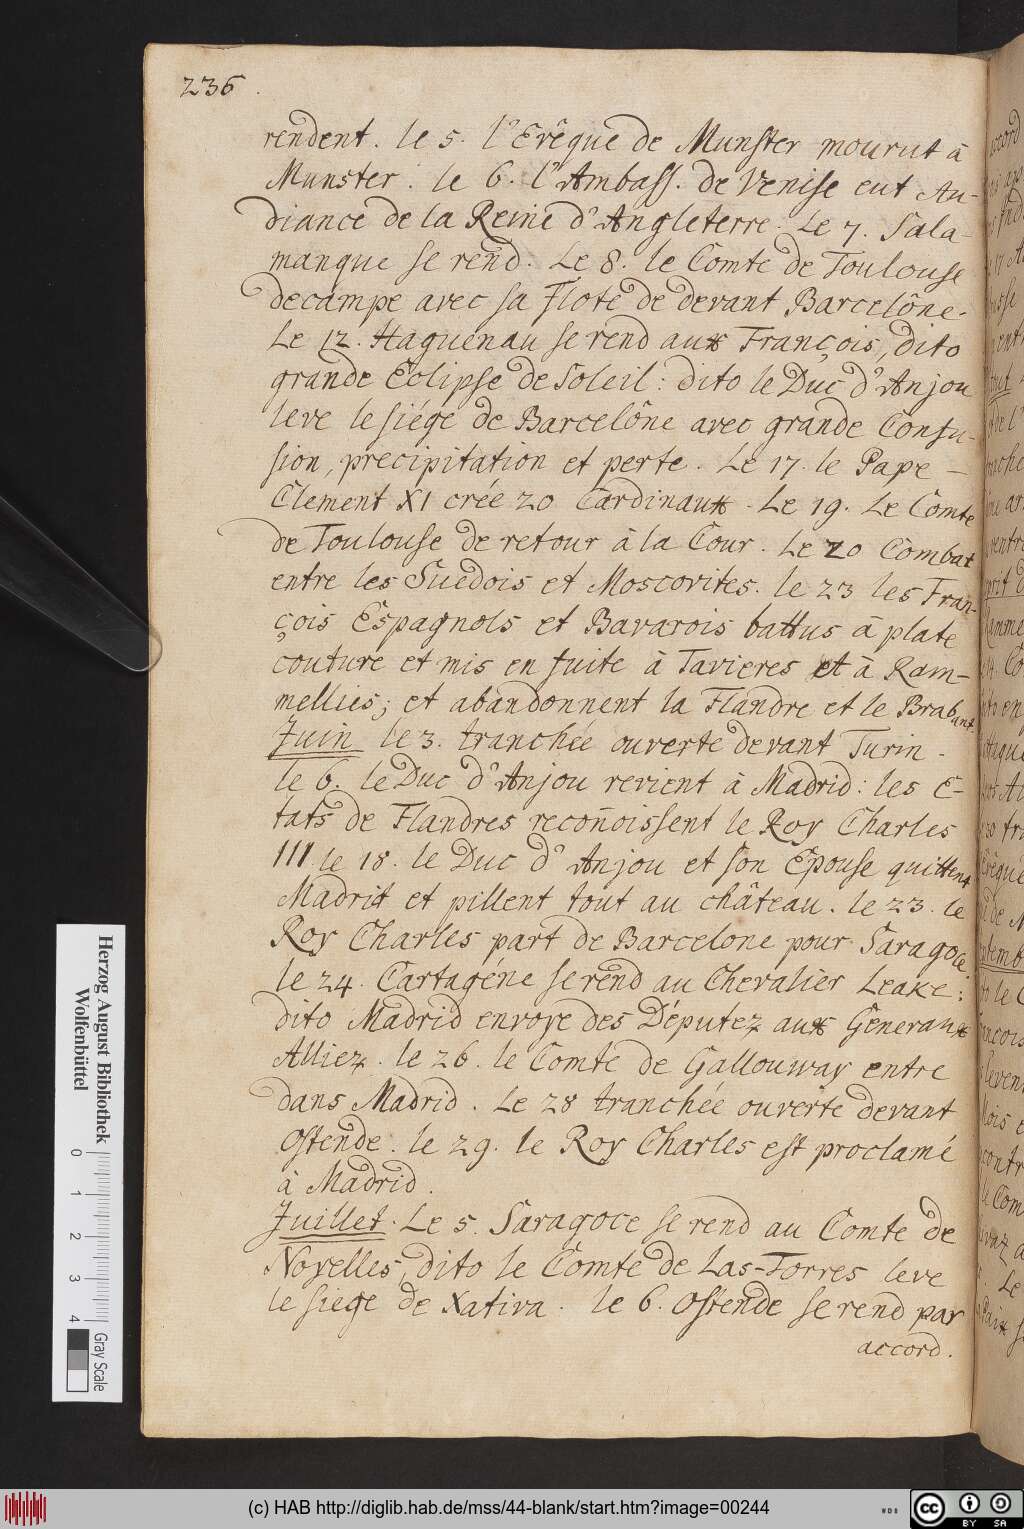 236.
rendent. le 5. l'Evêque de Munster mourut à
Munster. le 6. l'Ambass. de Venise eut Au-
diance de la Reine d'Angleterre. Le 7. Sala-
manque se rend. Le 8. le Comte de Toulouse
decampe avec sa Flote de devant Barcelône.
Le 12. Haguenau se rend aux François, dito
grande Eclipse de Soleil: dito le Duc d'Anjou
leve le siége de Barcelône avec grande Confu-
sion, precipitation et perte. Le 17. le Pape –
Clement XI crée 20 Cardinaux. Le 19. Le Comte
de Toulouse de retour à la Cour. Le 20 Combat
entre les Suedois et Moscovites. le 23 les Fran-
çois Espagnols et Bavarois battus à plate
couture et mis en fuite à Tavieres et à Ram-
mellies; et abandonnent la Flandre et le Brabant.
Juin le 3. tranchée ouverte devant Turin.
le 6. le Duc d'Anjou revient à Madrid: les E-
tats de Flandres recoñoissent le Roy Charles
III le 18. le Duc d'Anjou et son Epouse quittent
Madrit et pillent tout au château. le 23. le
Roy Charles part de Barcelone pour Saragoce.
le 24. Cartagéne se rend au Chevalier Leake:
dito Madrid envoye des Députez aux Generaux
Alliez. le 26. le Comte de Gallouway entre
dans Madrid. Le 28 tranchée ouverte devant
Ostende. le 29. le Roy Charles est proclamé
à Madrid.
Juillet. Le 5. Saragoce se rend au Comte de
Noyelles, dito le Comte de Las-Torres leve
le siege de Xativa. le 6. Ostende se rend par
accord.
Herzog August Bibliothek
Wolfenbüttel
0 1 2 3 4
Gray Scale
(c) HAB http://diglib.hab.de/mss/44-blank/start.htm?image=00244
WDB
cc BY SA